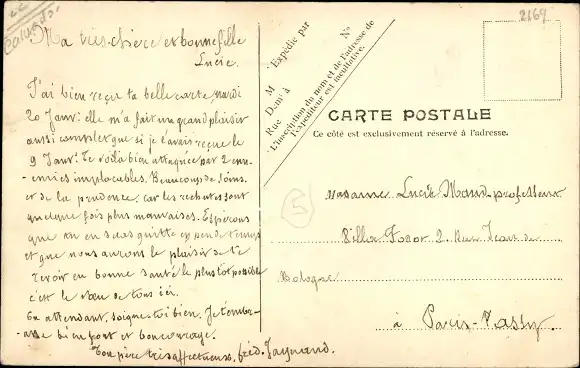 2169
Ma très chère et bonne fille
Lucie.
J'ai bien reçu ta belle carte, mardi
20 Janv: elle m'a fait un grand plaisir
aussi complet que si je l'avais reçue le
9 Janv: Te voilà bien attaquée par 2 enn-
-emies implacables. Beaucoup de soins
et de la prudence, car les rechutes sont
quelque fois plus mauvaises. Espérons
que tu en seras quitte en peu de temps
et que nous aurons le plaisir de te
revoir en bonne santé le plus tôt possible
c'est le vœu de tous ici.
En attendant, soigne toi bien. Je t'embr-
-asse bien fort et bon courage.
Ton père très affectueux, fréd.
Expédié par
M
Rue
Dem^t à
N°
L'inscription du nom et de l'adresse de
l'expéditeur est facultative.
CARTE POSTALE
Ce côté est exclusivement réservé à l'adresse.
5
Madame Lucie professeur
Villa 2. Rue Jean de
Bologne
à Paris-Passy.